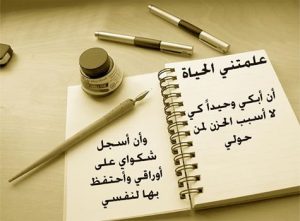 علمتني الحياة
أن أبكي وحيداً كي
لا أسبب الحزن لمن
حولي
وأن أسجل
شكواي على
أوراقي وأحتفظ
بها لنفسي